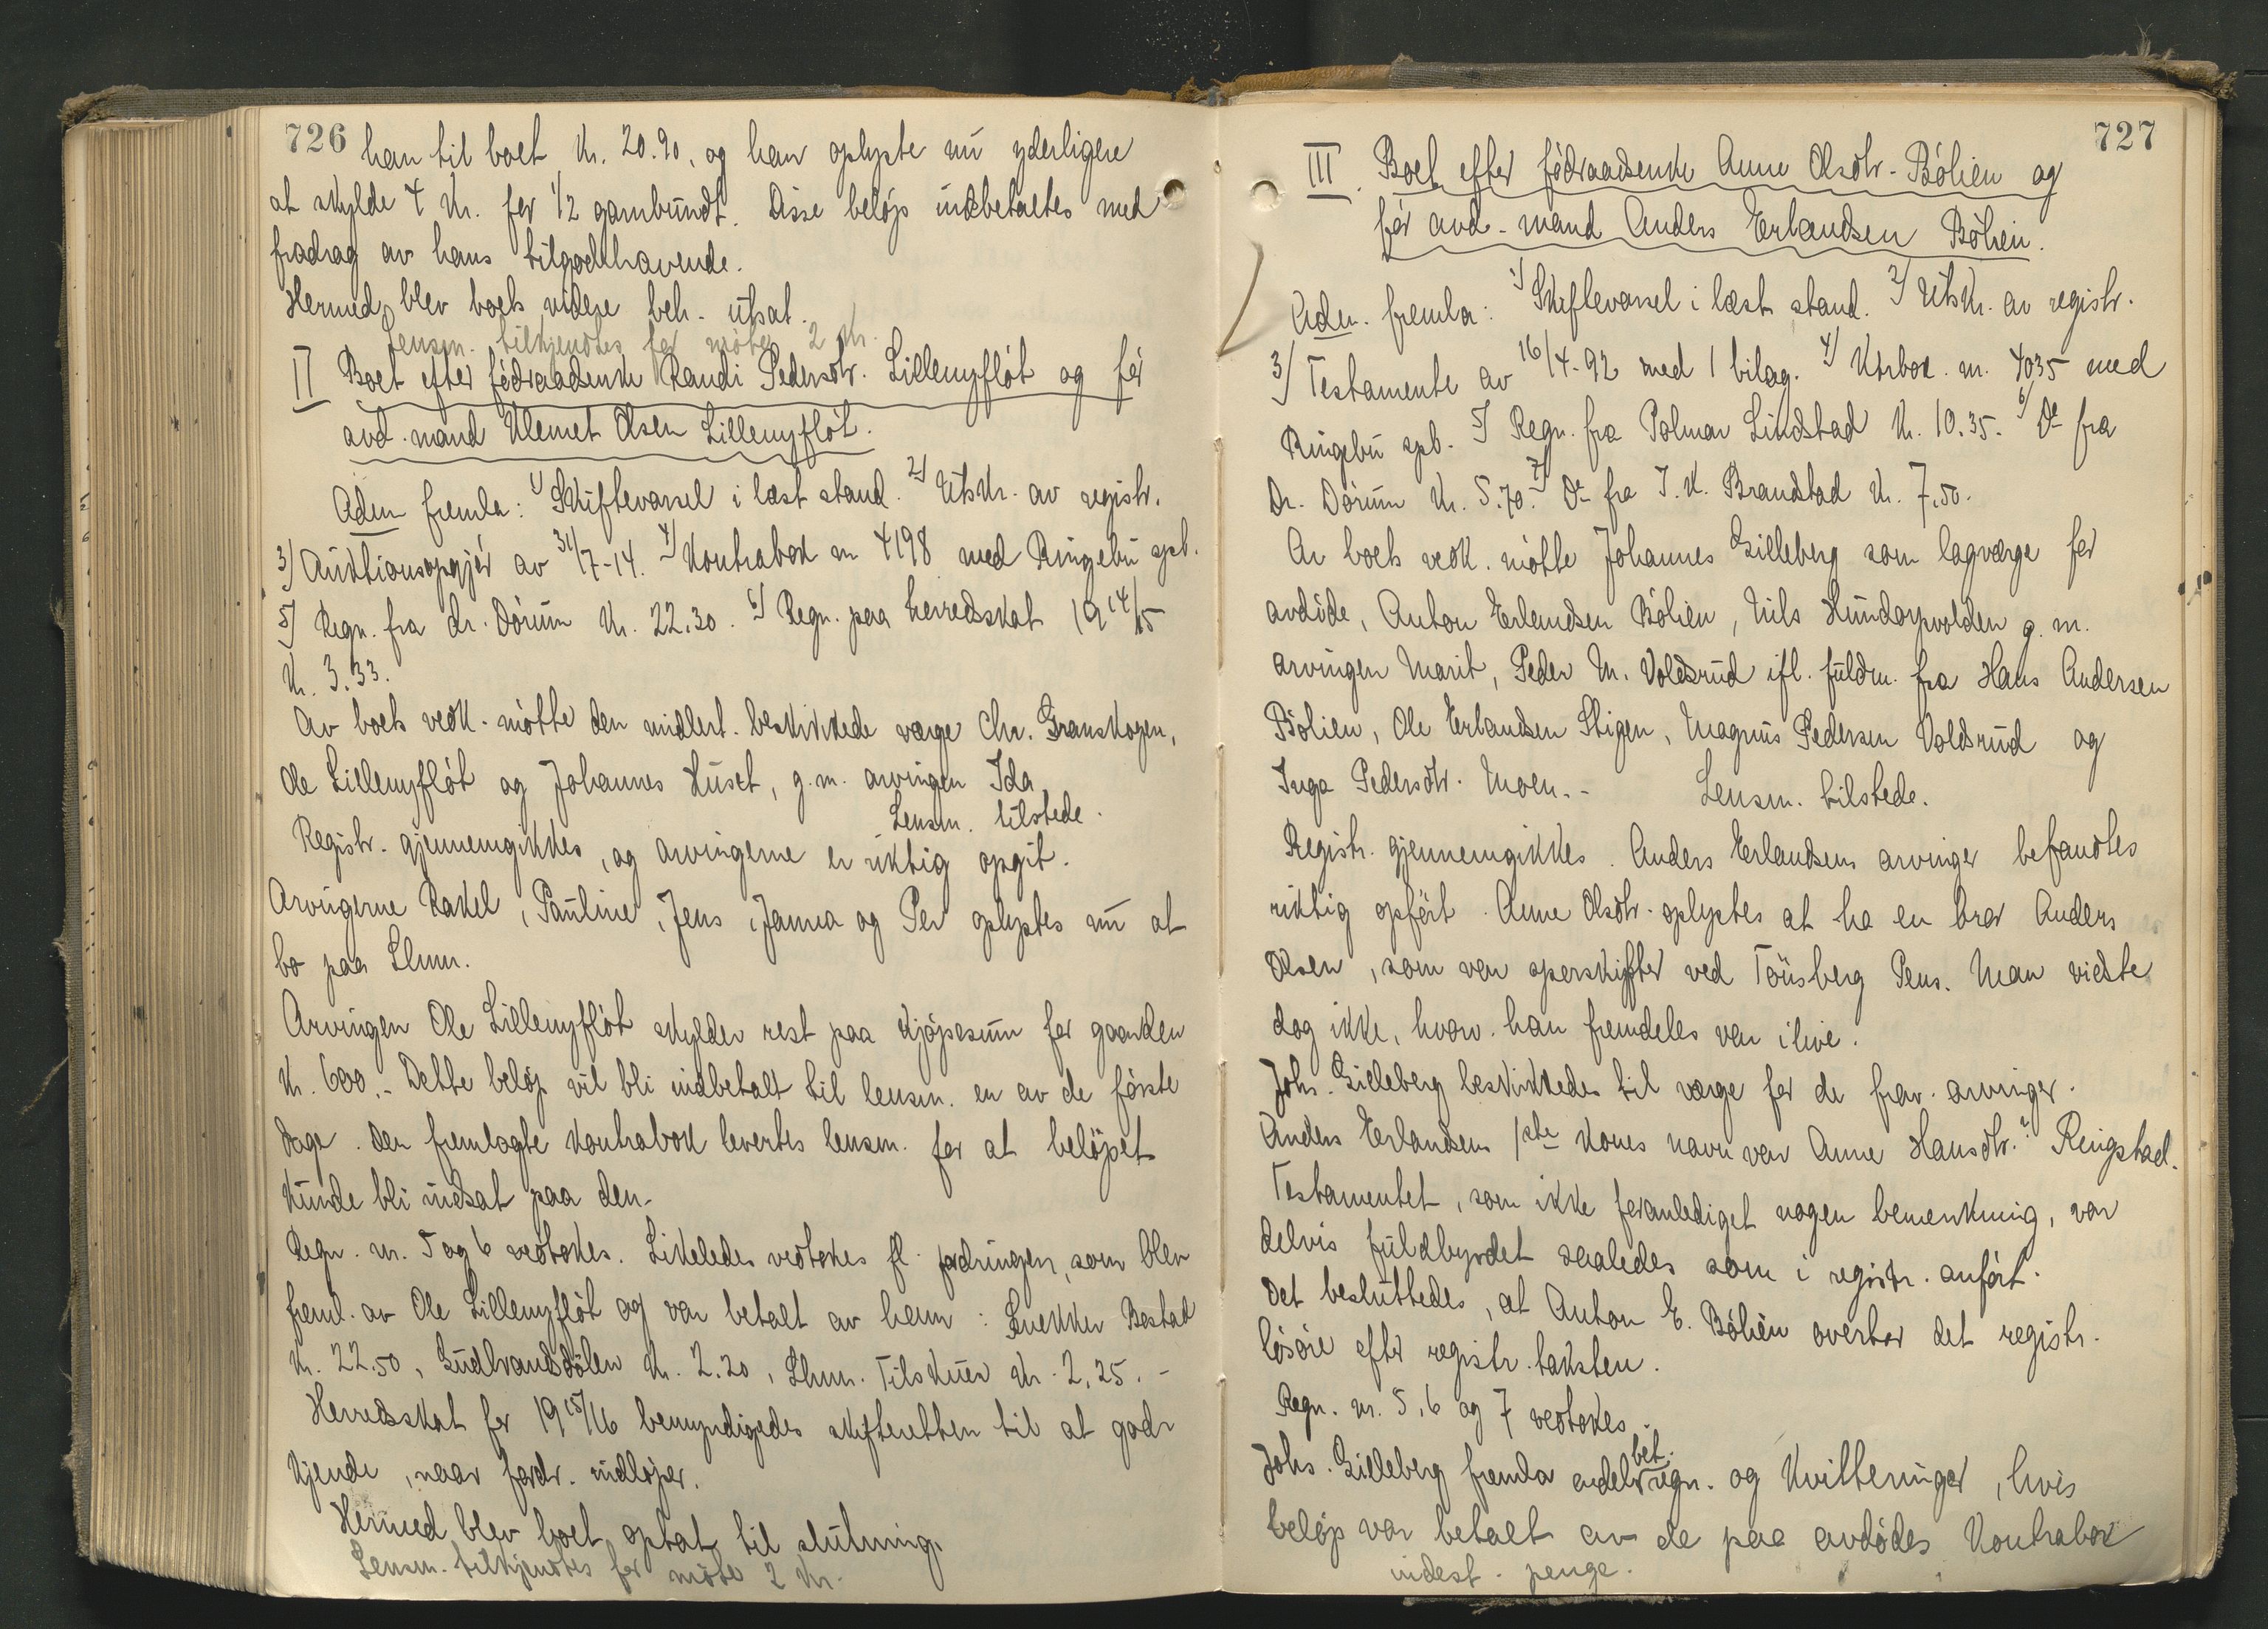 726
han til boet Kr. 20.90, og han oplyste nu yderligere
at skylde 4 Kr. for 1/2 garnbundt. Disse beløp indbetaltes med
fradrag av hans tilgodehavende.
Hermed blev boets videre beh. utsat.
Lensm. tilkjendtes for møtet 2 Kr.
II Boet efter føderaadsenke Randi Pedersdtr. Lillenyfløt og før
avd. mand Klemet Olsen Lillenyfløt.
Adm fremla: 1) Skiftevarsel i læst stand. 2) Utskr. av registr.
3) Auktionsopgjør av 31/7-14. 4) Kontrabok nr 4198 med Ringebu spb.
5) Regn. fra dr. Dørum Kr. 22.30. 6) Regn. paa herredsskat 1914/15
Kr. 3.33.
Av boets vedk. møtte den midlert. beskikkede værge Chr. Granskogen,
Ole Lillenyfløt og Johannes Huset, g.m. arvingen Ida
Lensm. tilstede.
Registr. gjennemgikkes, og arvingerne er riktig opgit.
Arvingerne Rakel, Pauline, Jens, Janna og Per oplystes nu at
bo paa Lhmr.
Arvingen Ole Lillenyfløt skylder rest paa kjøpesum for gaarden
Kr. 600.- Dette beløp vil bli indbetalt til lensm. en av de første
dage. Den fremlagte kontrabok levertes lensm. for at beløpet
kunde bli indsat paa den.
Regn. nr. 5 og 6 vedtokes. Likeledes vedtokes fl. fordringer, som blev
freml. av Ole Lillenyfløt og var betalt av ham: Snekker Bostad
Kr. 22.50, Gudbrandsdølen Kr. 2.20, Lhmr. Tilskuer Kr. 2.25.-
Herredsskat for 1915/16 bemyndigedes skifteretten til at god-
kjende, naar fordr. indløper.
Hermed blev boet optat til slutning.
Lensm. tilkjendtes for møtet 2 Kr.
727
III. Boet efter føderaadsenke Anne Olsdtr. Bølien og
før avd. mand Anders Erlandsen Bølien.
Adm. fremla: 1) Skiftevarsel i læst stand. 2) Utskr. av registr.
3) Testamente av 16/4-92 med 1 bilag. 4) Ktrbok nr. 4035 med
Ringebu spb. 5) Regn. fra Polmar Lindstad Kr. 10.35. 6) Do fra
Dr. Dørum Kr. 5.70. 7) Do fra J.K. Brandstad Kr. 7.50.
Av boets vedk. møtte Johannes Gilleberg som lagværge for
avdøde, Anton Erlandsen Bølien, Nils Hundorpvolden g.m.
arvingen Marit, Peder M. Voldsrud ifl. fuldm. fra Hans Andersen
Bølien, Ole Erlandsen Stigen, Magnus Pedersen Voldsrud og
Inga Pedersdtr. Moen.- Lensm. tilstede.
Registr. gjennemgikkes. Anders Erlandsens arvinger befandtes
riktig opført. Anne Olsdtr. oplystes at ha en bror Anders
Olsen, som var sporskifter ved Tönsberg Pens. Man vidste
dog ikke, hvorv. han fremdeles var ilive.
Johs. Gilleberg beskikkedes til værge for de frav. arvinger.
Anders Erlandsens 1ste kones navn var Anne Hansdtr. Ringstad.
Testamentet, som ikke foranlediget nogen bemerkning, var
delvis fuldbyrdet saaledes som i registr. anført.
Det besluttedes, at Anton E. Bølien overtar det registr.
løsøre efter registr. taksten.
Regn. nr. 5, 6 og 7 vedtokes.
Johs. Gilleberg fremla endel bet. regn. og kvitteringer, hvis
beløp var betalt av de paa avdødes kontrabok
indest. penge.